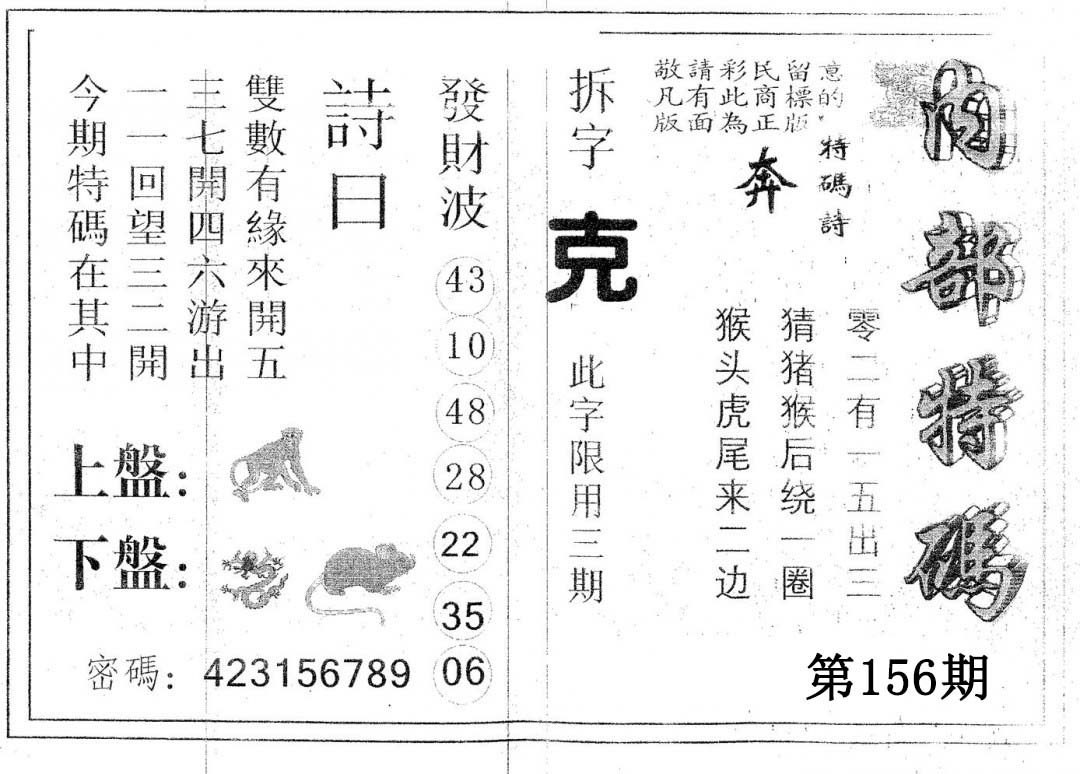 內部特碼
第156期
意的
留標版
民商正
彩此為
請有面
敬凡版
特碼詩
奔
零二有一五出三
猜猪猴后绕一圈
猴头虎尾来二边
拆字
克
此字限用三期
發財波
43
10
48
28
22
35
06
詩曰
雙數有緣來開五
三七開四六游出
一一回望三二開
今期特碼在其中
上盤:
下盤:
密碼: 423156789